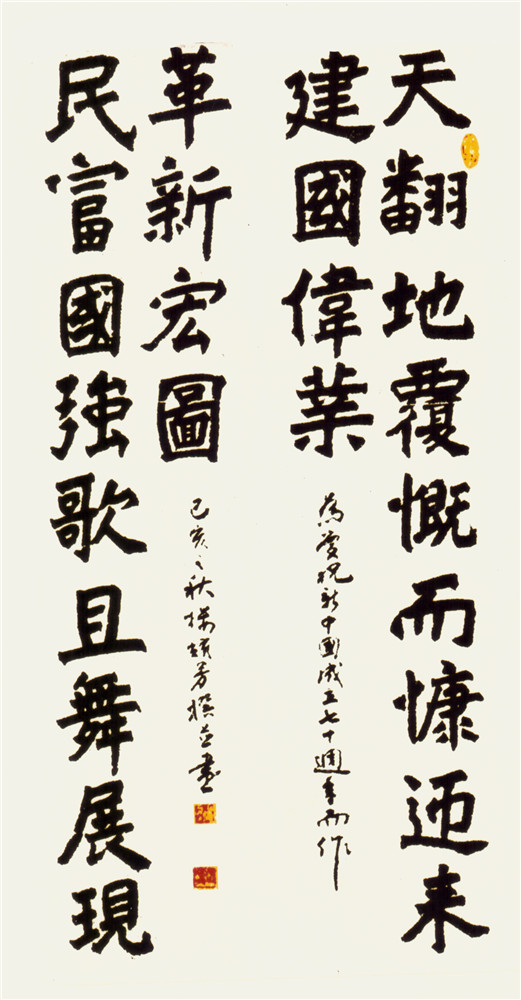 天翻地覆慨而慷迊来
建國偉業
為慶祝新中國成立七十週年而作
民富國強歌且舞展現
革新宏圖
己亥之秋芳撰並書